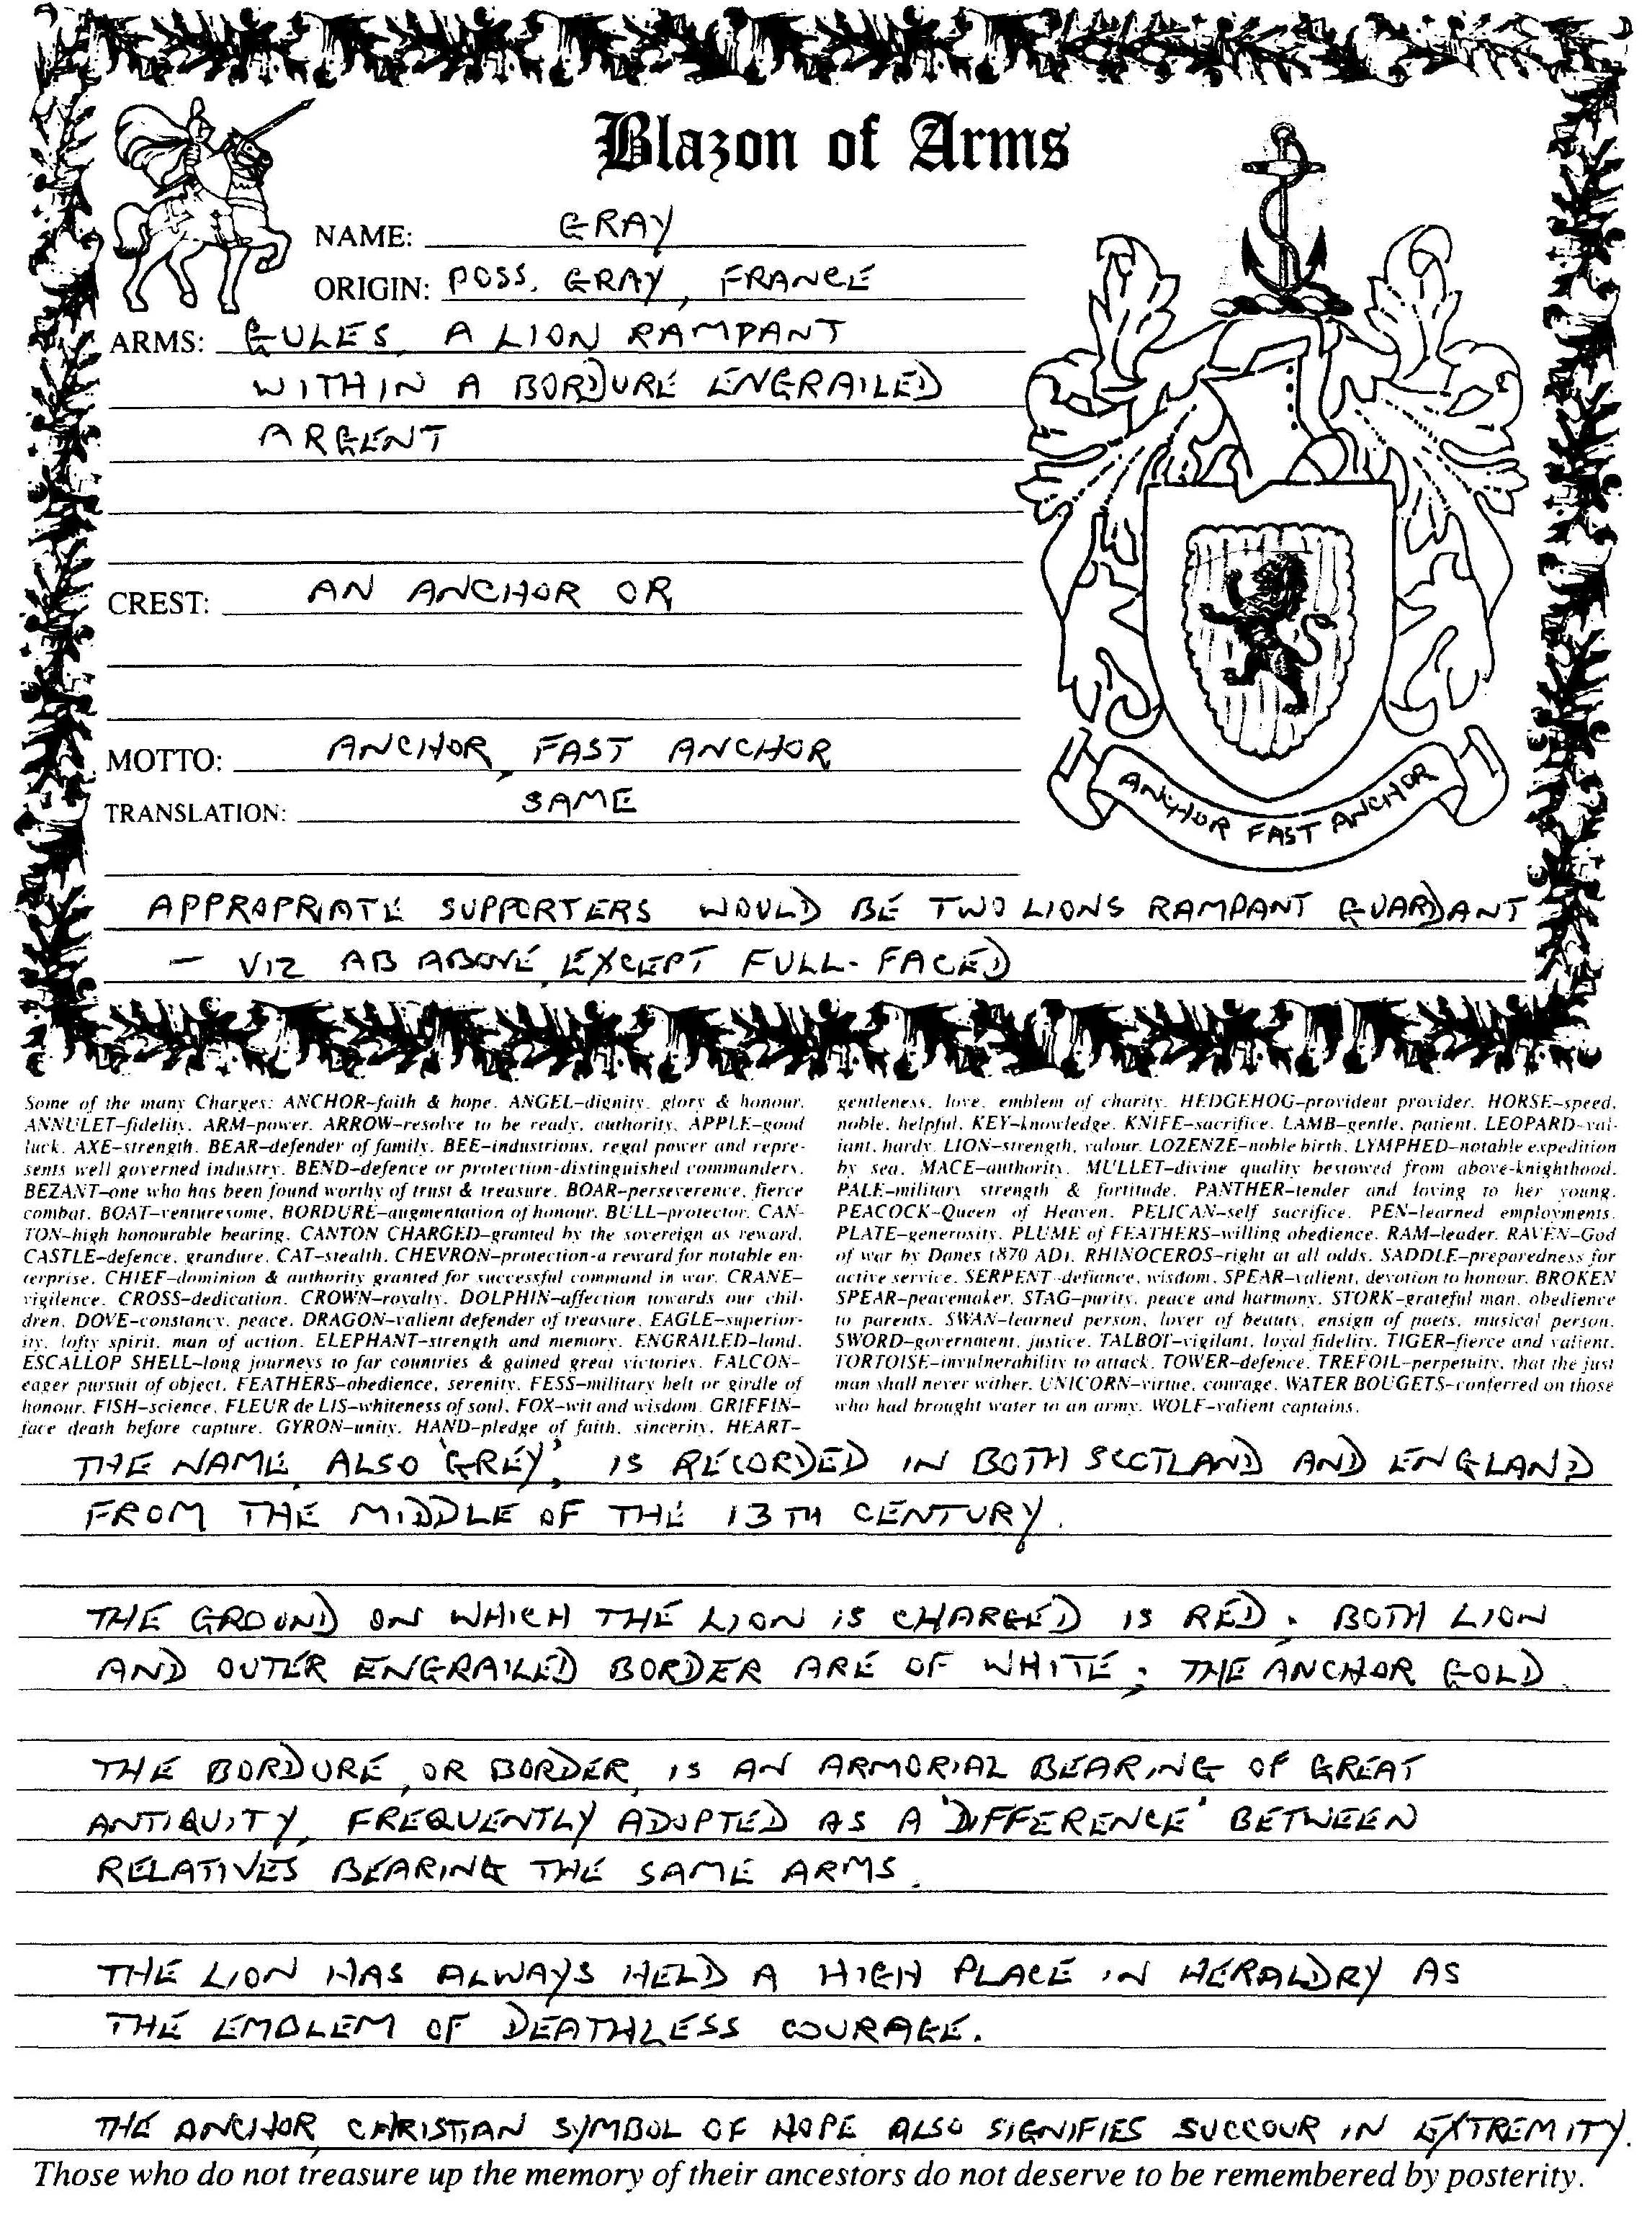 Blazon of Arms
NAME: GRAY
ORIGIN: POSS. GRAY, FRANCE
ARMS: GULES, A LION RAMPANT
WITHIN A BORDURE ENGRAILED
ARGENT
CREST: AN ANCHOR OR
MOTTO: ANCHOR, FAST ANCHOR
TRANSLATION: SAME
ANCHOR FAST ANCHOR
APPROPRIATE SUPPORTERS WOULD BE TWO LIONS RAMPANT GUARDANT
- VIZ AB ABOVE, EXCEPT FULL-FACED
Some of the many Charges: ANCHOR–faith & hope. ANGEL–dignity, glory & honour.
ANNULET–fidelity. ARM–power. ARROW–resolve to be ready, authority. APPLE–good
luck. AXE–strength. BEAR–defender of family. BEE–industrious, regal power and repre-
sents well governed industry. BEND–defence or protection-distinguished commanders.
BEZANT–one who has been found worthy of trust & treasure. BOAR–perseverence, fierce
combat. BOAT–venturesome, BORDURE–augmentation of honour. BULL–protector. CAN-
TON–high honourable bearing. CANTON CHARGED–granted by the sovereign as reward.
CASTLE–defence, grandure. CAT–stealth. CHEVRON–protection-a reward for notable en-
terprise. CHIEF–dominion & authority granted for successful command in war. CRANE–
vigilence. CROSS–dedication. CROWN–royalty. DOLPHIN–affection towards our chil-
dren. DOVE–constancy, peace. DRAGON–valient defender of treasure. EAGLE–superior-
ity, lofty spirit, man of action. ELEPHANT–strength and memory. ENGRAILED–land.
ESCALLOP SHELL–long journeys to far countries & gained great victories. FALCON–
eager pursuit of object. FEATHERS–obedience, serenity. FESS–military belt or girdle of
honour. FISH–science. FLEUR de LIS–whiteness of soul. FOX–wit and wisdom. GRIFFIN–
face death before capture. GYRON–unity. HAND–pledge of faith, sincerity. HEART–
gentleness, love, emblem of charity. HEDGEHOG–provident provider. HORSE–speed,
noble, helpful. KEY–knowledge. KNIFE–sacrifice. LAMB–gentle, patient. LEOPARD–val-
iant, hardy. LION–strength, valour. LOZENZE–noble birth. LYMPHED–notable expedition
by sea. MACE–authority. MULLET–divine quality bestowed from above-knighthood.
PALE–military strength & fortitude. PANTHER–tender and loving to her young.
PEACOCK–Queen of Heaven. PELICAN–self sacrifice. PEN–learned employments.
PLATE–generosity. PLUME of FEATHERS–willing obedience. RAM–leader. RAVEN–God
of war by Danes (870 AD). RHINOCEROS–right at all odds. SADDLE–preparedness for
active service. SERPENT–defiance, wisdom. SPEAR–valient, devotion to honour. BROKEN
SPEAR–peacemaker. STAG–purity, peace and harmony. STORK–grateful man, obedience
to parents. SWAN–learned person, lover of beauty, ensign of poets, musical person.
SWORD–government, justice. TALBOT–vigilant, loyal fidelity. TIGER–fierce and valient.
TORTOISE–invulnerability to attack. TOWER–defence. TREFOIL–perpetuity, that the just
man shall never wither. UNICORN–virtue, courage. WATER BOUGETS–conferred on those
who had brought water to an army. WOLF–valient captains.
THE NAME, ALSO 'GREY', IS RECORDED IN BOTH SCOTLAND AND ENGLAND
FROM THE MIDDLE OF THE 13TH CENTURY.
THE GROUND ON WHICH THE LION IS CHARGED IS RED. BOTH LION
AND OUTER ENGRAILED BORDER ARE OF WHITE; THE ANCHOR GOLD.
THE BORDURE, OR BORDER, IS AN ARMORIAL BEARING OF GREAT
ANTIQUITY, FREQUENTLY ADOPTED AS A 'DIFFERENCE' BETWEEN
RELATIVES BEARING THE SAME ARMS.
THE LION HAS ALWAYS HELD A HIGH PLACE IN HERALDRY AS
THE EMBLEM OF DEATHLESS COURAGE.
THE ANCHOR, CHRISTIAN SYMBOL OF HOPE ALSO SIGNIFIES SUCCOUR IN EXTREMITY.
Those who do not treasure up the memory of their ancestors do not deserve to be remembered by posterity.